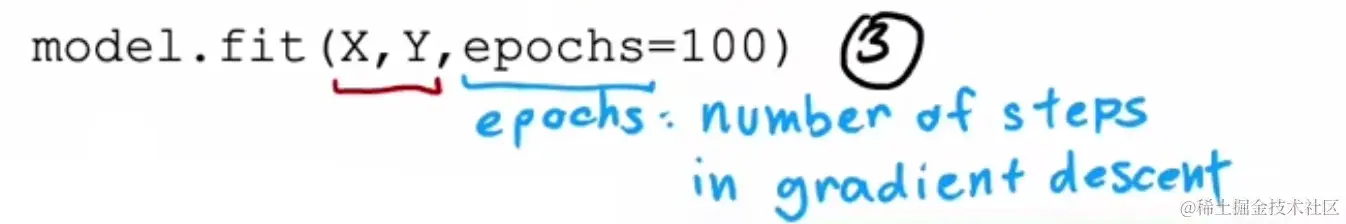 model.fit(X,Y,epochs=100) ③
epochs: number of steps
in gradient descent
@稀土掘金技术社区